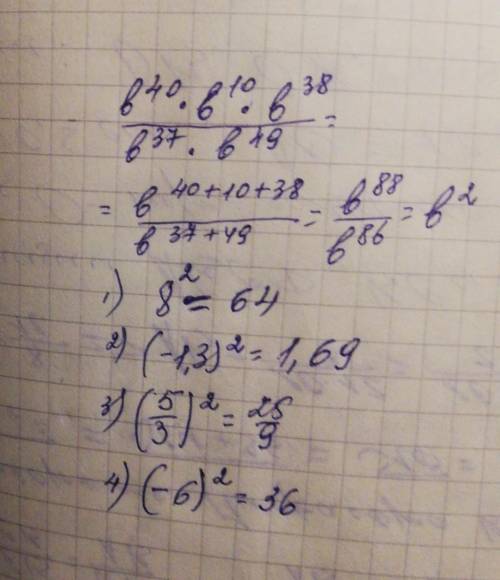 b⁴⁰ · b¹⁰ · b³⁸ / b³⁷ · b⁴⁹ =
= b⁴⁰⁺¹⁰⁺³⁸ / b³⁷⁺⁴⁹ = b⁸⁸ / b⁸⁶ = b²
1) 8² = 64
2) (-1,3)² = 1,69
3) (5/3)² = 25/9
4) (-6)² = 36